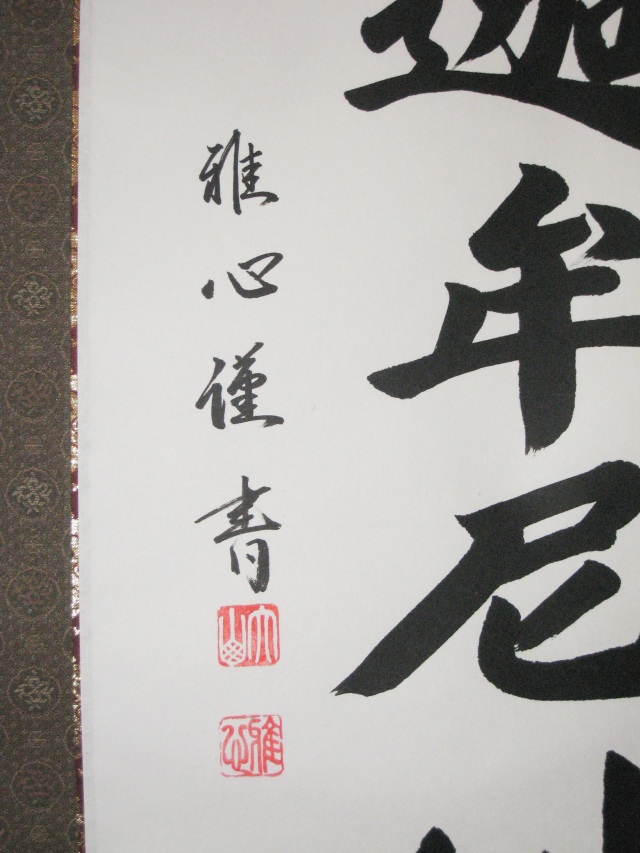 迦牟尼
雅心謹書
雅心